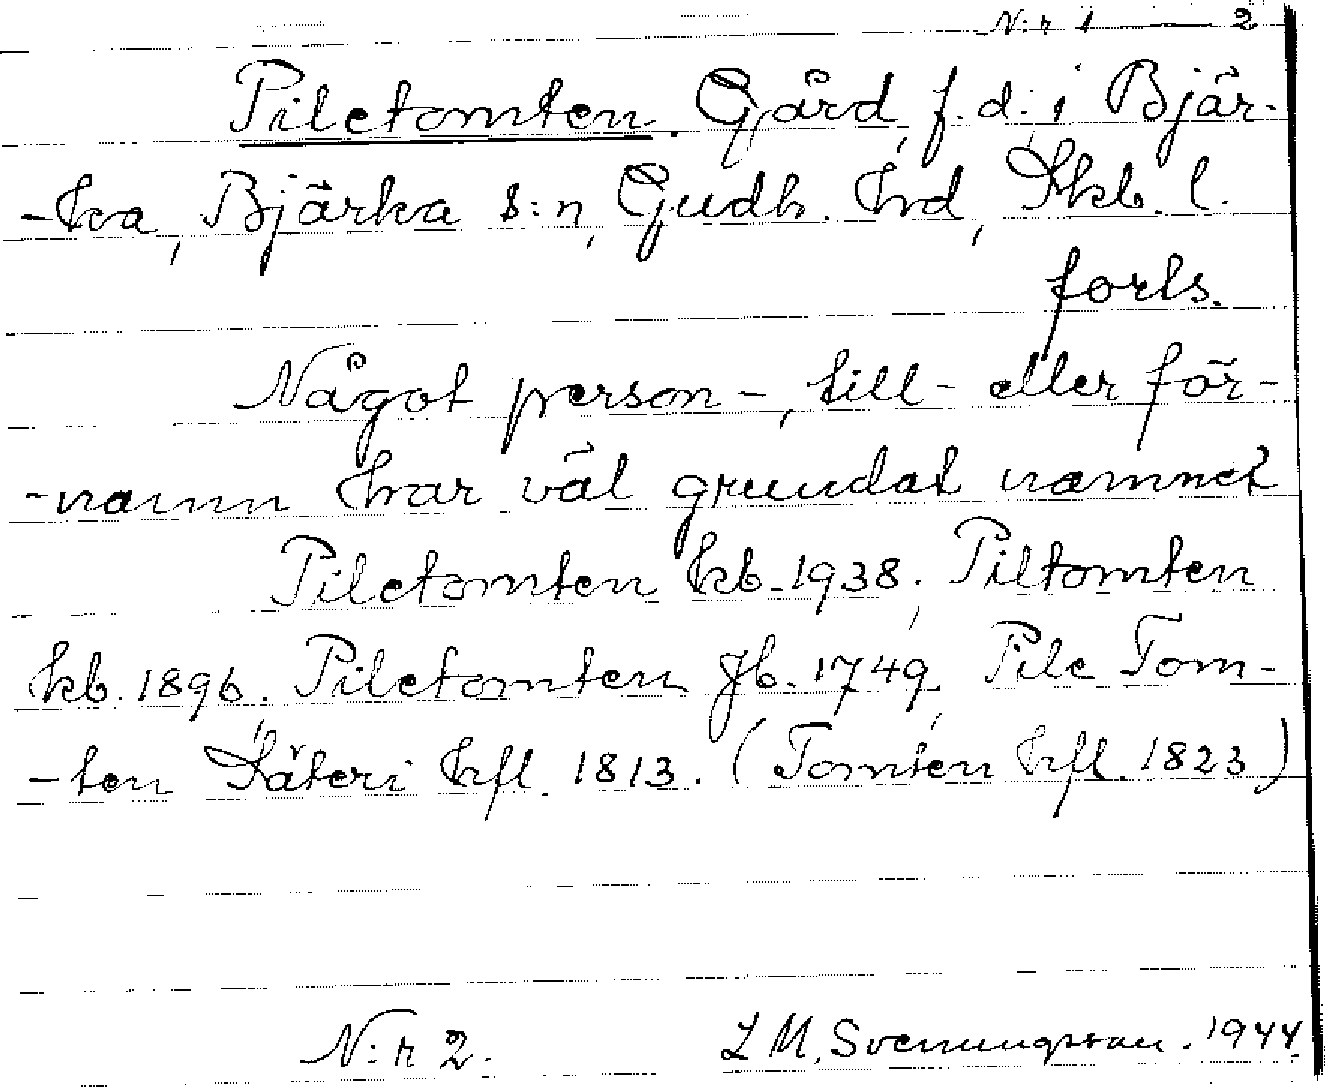 N:r 1 — 2
Piletomten. Gård, f.d. i Bjär-
-ka, Bjärka s:n, Gudh. hrd, Skb. l.
forts.
Något person-, till- eller för-
-namn har väl grundat namnet
Piletomten kb. 1938, Piltomten
kb. 1896, Piletomten jb. 1749, Pile Tom-
-ten Säteri hfl. 1813. (Tomten hfl. 1823)
N:r 2. L M. Svenungsson. 1944.